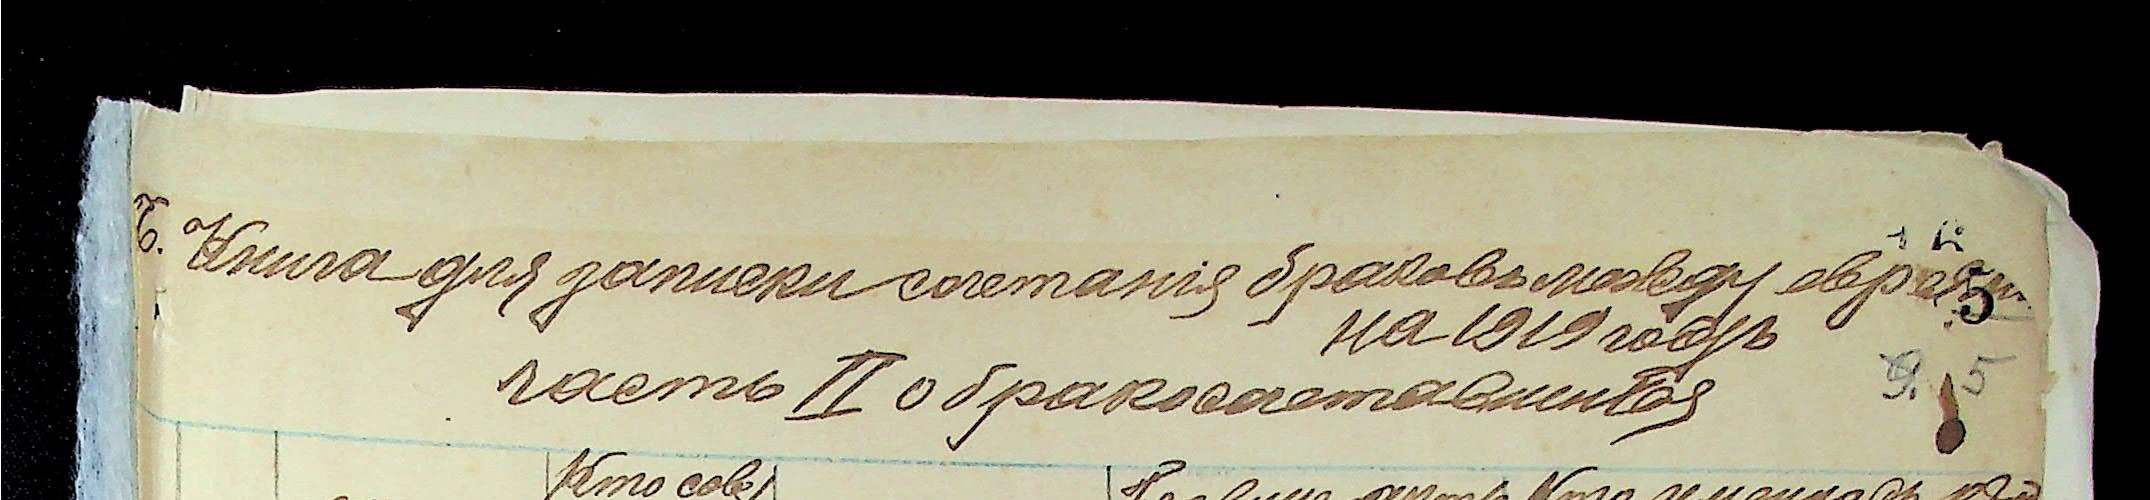 Книга для записки сочетанія браковъ между евреями
5
на 1919 годъ
часть II о бракосочетавшихся
5
Кто сове